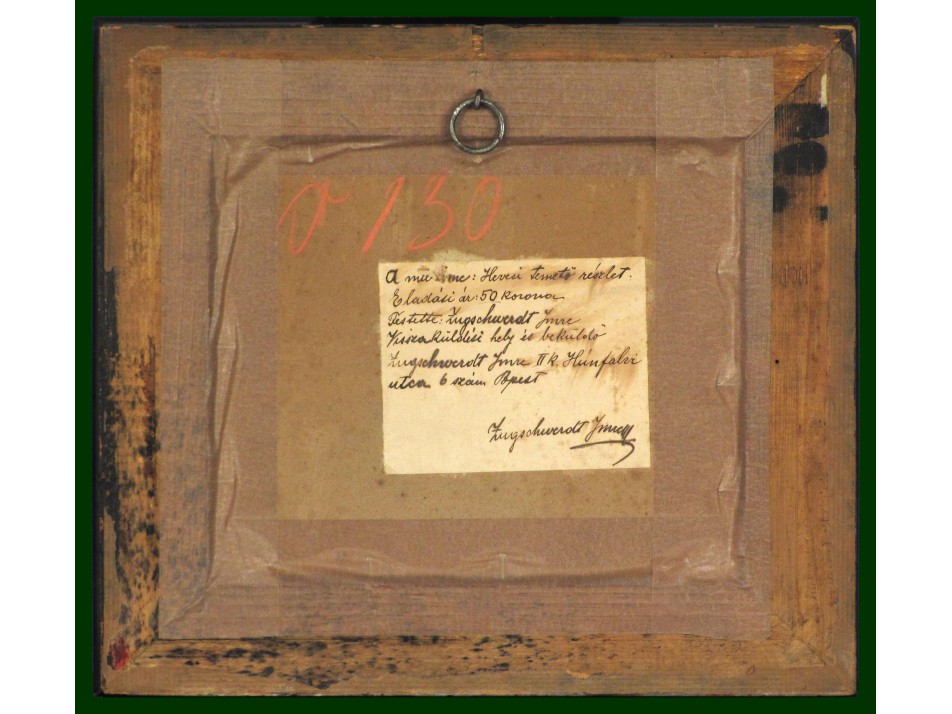 130
A mű címe: Hevesi temető részlet.
Eladási ár: 50 korona
Festette: Zugschwerdt Imre
Visszaküldési hely és beküldő
Zugschwerdt Imre II k. Hunfalvi
utca 6 szám Bpest
Zugschwerdt Imre